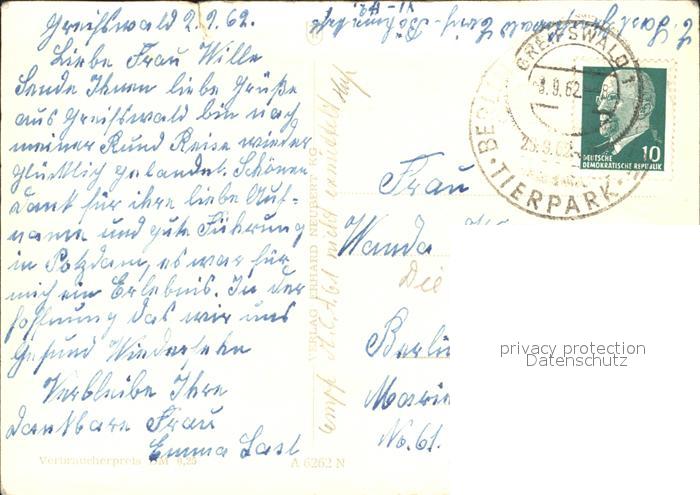 Greifswald 2.9.62.
Liebe Frau Wille
Sende Ihnen liebe Grüße
aus Greifswald bin nach
meiner Rund Reise wieder
glücklich gelandet. Schönen
Dank für ihre liebe Auf-
name und gute Führung
in Potzdam, es war für
mich ein Erlebnis. In der
Hoffnung das wir uns
Gesund Wiedersehn
Verbleibe Ihre
Dankbare Frau
Emma Last
Verbraucherpreis DM 0,25
A 6262 N
VERLAG ERHARD NEUBERT KG
GREIFSWALD 1
.9.62
BERLIN
TIERPARK
DEUTSCHE
DEMOKRATISCHE REPUBLIK
10
Frau
Wanda
Die
Berli
Marie
No. 61.
privacy protection
Datenschutz